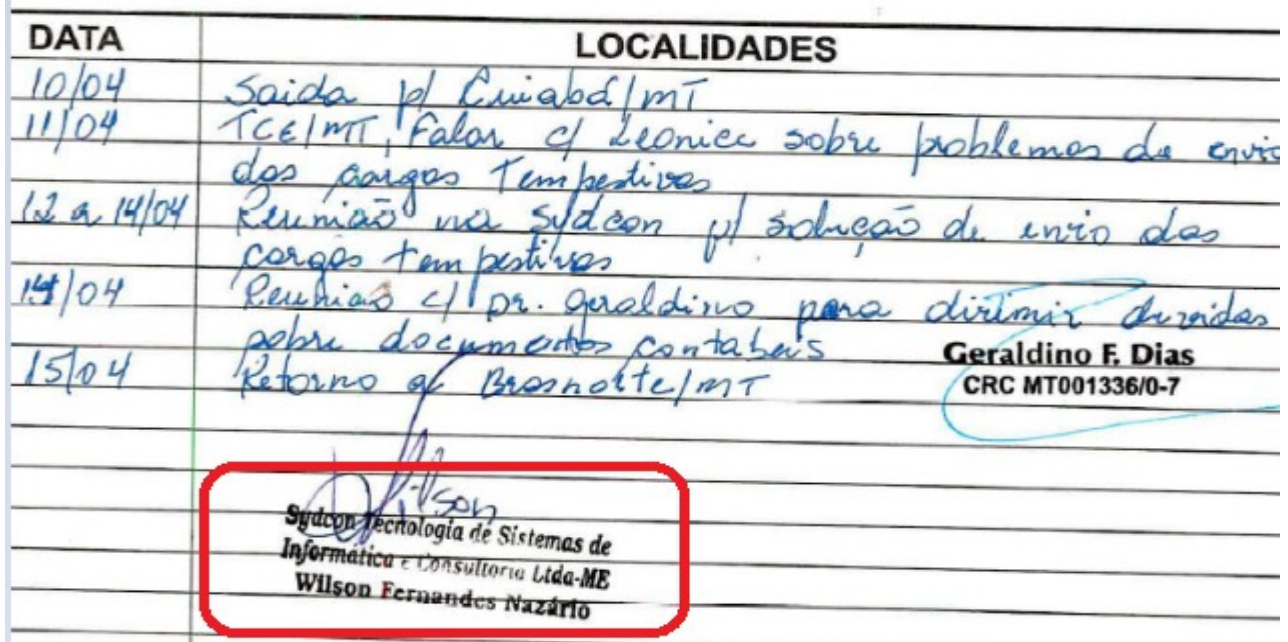 DATA LOCALIDADES
10/04 Saida p/ Cuiabá/MT
11/04 TCE/MT, Falar c/ Leonice sobre problemas de envio
das cargas Tempestivas
12 a 14/04 Reunião na Sydcon p/ solução de envio das
cargas tempestivas
14/04 Reunião c/ Dr. Geraldino para dirimir duvidas
sobre documentos contabeis
Geraldino F. Dias
15/04 Retorno a Brasnorte/MT
CRC MT001336/0-7
Wilson
Sydcon Tecnologia de Sistemas de
Informática e Consultoria Ltda-ME
Wilson Fernandes Nazário